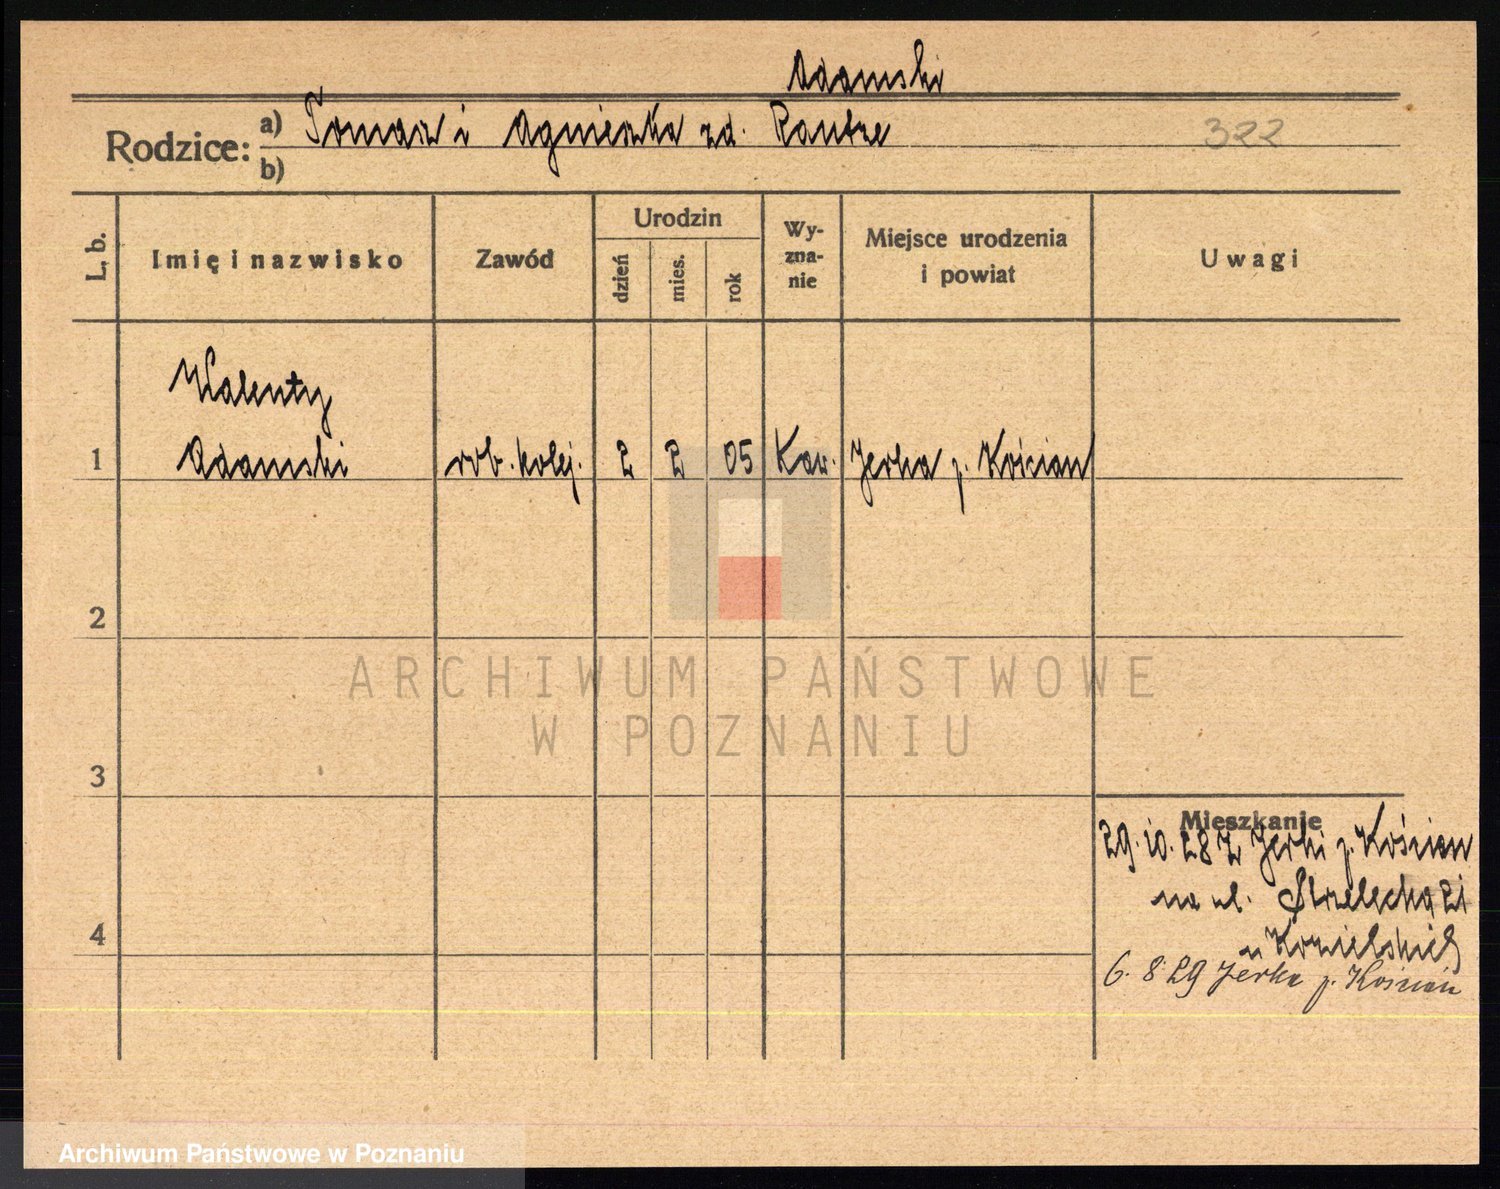 Adamski
Rodzice: a) Tomasz i Agnieszka zd.
322
b)
L. b.
Imię i nazwisko
Zawód
Urodzin
dzień
mies.
rok
Wy-
zna-
nie
Miejsce urodzenia
i powiat
Uwagi
Walenty
1 Adamski rob. kolej. 2 2 05 Jerka p. Kościan
2
ARCHIWUM PAŃSTWOWE
W POZNANIU
3
Mieszkanie
29.10.28 z Jerki p. Kościan
na ul. Strzelecka 21
4
u Kozielskich
6. 8 29 Jerka p. Kościan
Archiwum Państwowe w Poznaniu